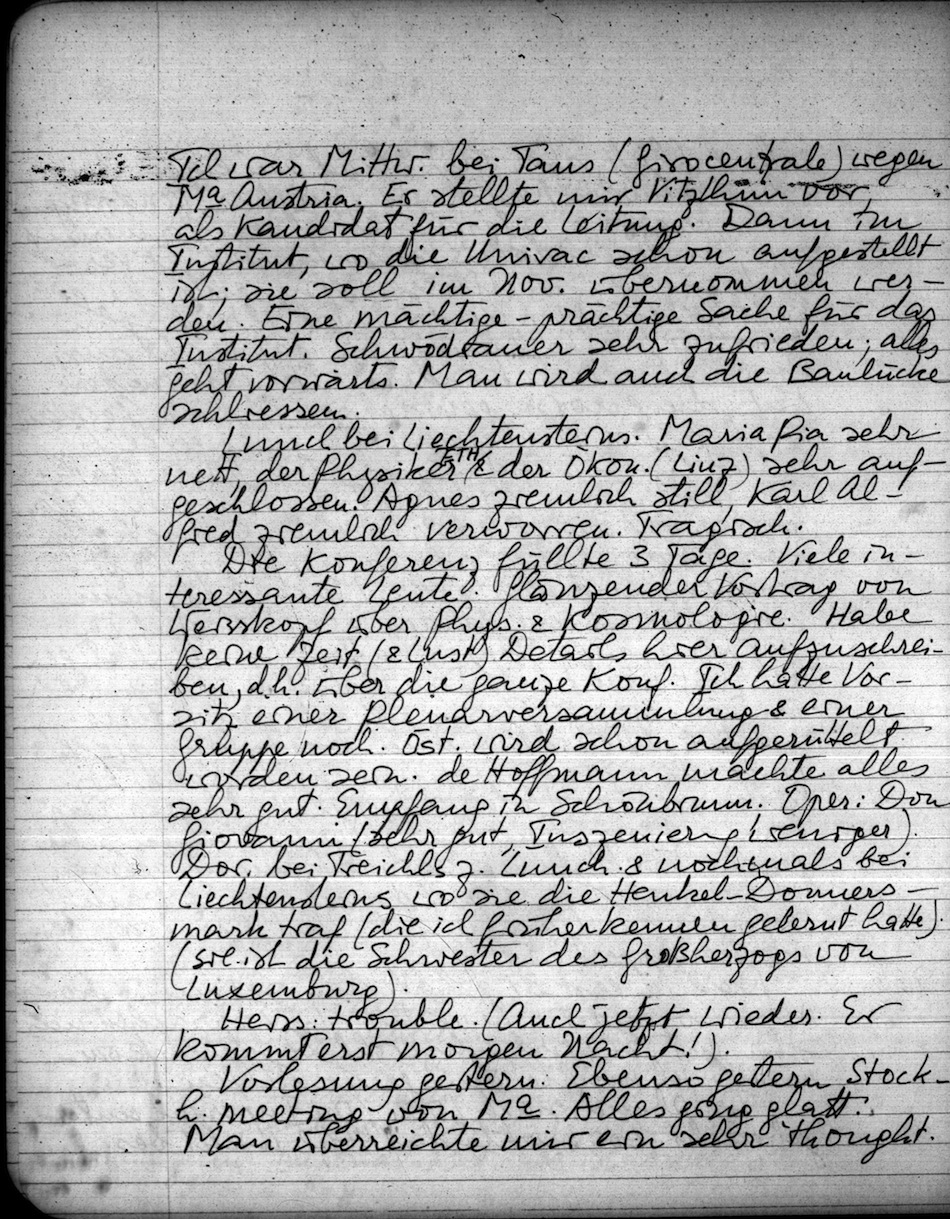 Ich war Mittw. bei Taus (Girocentrale) wegen
Ma Austria. Er stellte mir Vitzthum vor,
als Kandidat für die Leitung. Dann im
Institut, wo die Univac schon aufgestellt
ist; sie soll im Nov. übernommen wer-
den. Eine mächtige – prächtige Sache für das
Institut. Schwödiauer sehr zufrieden; alles
geht vorwärts. Man wird auch die Baulücke
schliessen.
Lunch bei Liechtensteins. Maria Pia sehr
nett, der Physiker (ETH) & der Ökon. (Linz) sehr auf-
geschlossen. Agnes ziemlich still, Karl Al-
fred ziemlich verworren. Tragisch.
Die Konferenz füllte 3 Tage. Viele in-
teressante Leute. Glänzender Vortrag von
Weisskopf über Phys. & Kosmologie. Habe
keine Zeit (& Lust) Details hier aufzuschrei-
ben, d.h. über die ganze Konf. Ich hatte Vor-
sitz einer Plenarversammlung & einer
Gruppe noch. Öst. wird schon aufgerüttelt
worden sein. de Hoffmann machte alles
sehr gut. Empfang in Schönbrunn. Oper: Don
Giovanni (sehr gut, Inszenierung weniger).
Dor. bei Treichls z. Lunch & nochmals bei
Liechtensteins, wo sie die Henkel-Donners-
mark traf (die ich früher kennen gelernt hatte)
(sie ist die Schwester des Großherzogs von
Luxemburg).
Heiss: trouble. (Auch jetzt wieder. Er
kommt erst morgen Nacht!).
Vorlesung gestern. Ebenso gestern Stock-
h. meeting von Ma. Alles ging glatt.
Man überreichte mir ein sehr thought.